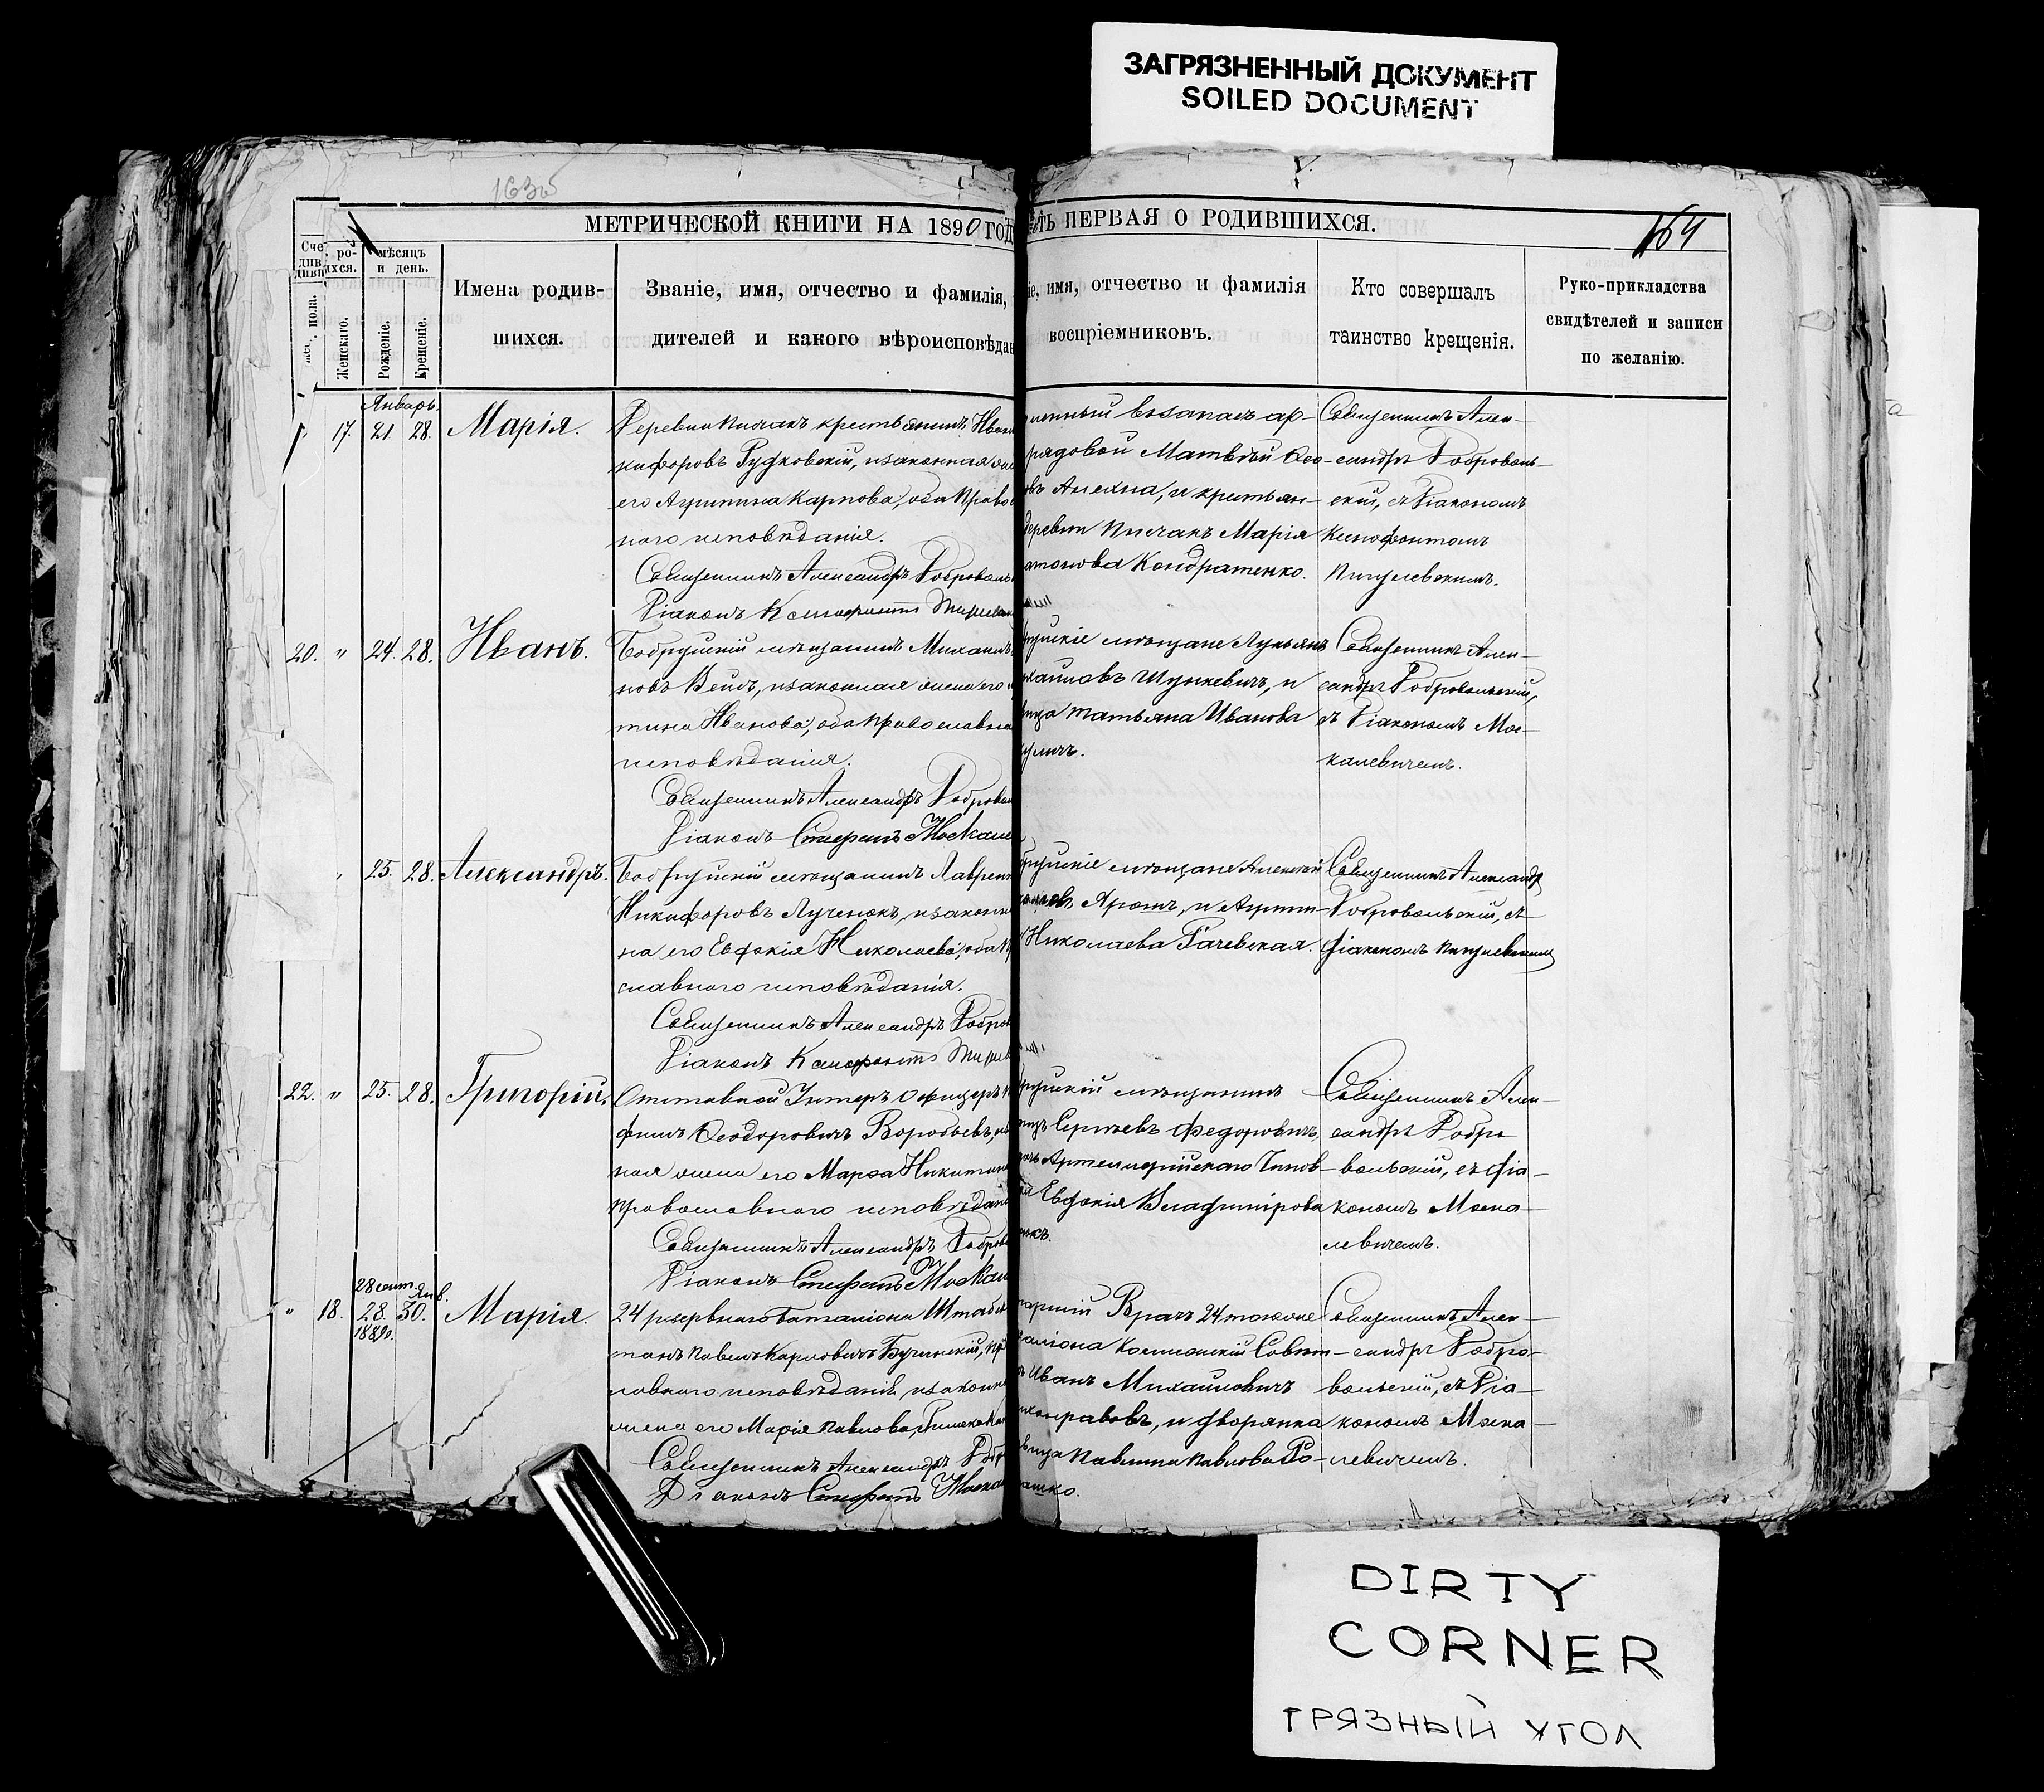 ЗАГРЯЗНЕННЫЙ ДОКУМЕНТ
SOILED DOCUMENT
МЕТРИЧЕСКОЙ КНИГИ НА 1890 ГОД
ТЬ ПЕРВАЯ О РОДИВШИХСЯ.
164
Сче
ро-
ихся.
мѣсяцъ
и день.
пола.
Женскаго.
Рожденіе.
Крещеніе.
Имена родив-
шихся.
Званіе, имя, отчество и фамилія,
дителей и какого вѣроисповѣдан
іе, имя, отчество и фамилія
воспріемниковъ.
Кто совершалъ
таинство крещенія.
Руко-прикладства
свидѣтелей и записи
по желанію.
Январь.
17. 21. 28.
Марія.
Деревни Кисчакъ крестьянинъ Иван
кифоровъ Рудковскій, и законная
его Агрипина Карпова, оба Право
ного исповѣданія.
Священникъ Александръ Доброволь
Діаконъ Ксенофонтъ
въ запасъ ар-
рядовой Матвѣй Ѳео-
и крестьян-
деревни Кисчакъ Марія
Кондратенко.
Священникъ Алек-
сандръ Доброволь-
скій, съ Діакономъ
Ксенофонтомъ
20. " 24. 28.
Иванъ.
Бобруйскій мѣщанинъ Михаилъ
новъ Вейсъ, и законная жена его
тина Иванова, оба Православна
исповѣданія.
Священникъ Александръ Доброво
Діаконъ Стефанъ Москале
руйскіе мѣщане Лукьянъ
хайловъ Шункевичъ, и
вица Татьяна Иванова
Священникъ Алек-
сандръ Добровольскій,
съ Діакономъ Мос-
калевичемъ.
25. 28.
Александръ.
Бобруйскій мѣщанинъ Лаврен
Никифоровъ Лученокъ, и законн
на его Евдокія Николаева, оба Пр
славного исповѣданія.
Священникъ Александръ Добров
Діаконъ Ксенофонтъ
бруйскіе мѣщане Алексѣй
Ярошъ, и Агрипи-
Николаева Гачевская.
Священникъ Александръ
Добровольскій, съ
діакономъ
22. " 25. 28.
Григорій.
Отставной Унтеръ Офицеръ
фимъ Ѳеодоровичъ Воробьевъ,
ная жена его Марѳа Никитина
Православного исповѣданія
Священникъ Александръ Добров
Діаконъ Стефанъ Москал
руйскій мѣщанинъ
Сергѣевъ Федоровичъ,
Артиллерійскаго Чинов-
Евдокія Владимірова
Священникъ Алек-
сандръ Добро
вольскій, съ діа-
кономъ Моска-
левичемъ.
28 сент. Янв.
" 18. 28. 30.
1889г.
Марія.
24 резервного баталіона Штабсъ
танъ Павелъ Карловичъ Бучинскій, пр
лавного исповѣданія, и законн
жена его Марія Павлова, Римско Ка
Священникъ Александръ Добр
Діаконъ Стефанъ Моска
Врачъ 24 того же
таліона Коллежскій Совѣт-
Иванъ Михайловичъ
и дворянка
вица Павлина Павлова Ро-
ашко.
Священникъ Алек-
сандръ Добро-
вольскій, съ Діа-
кономъ Моска-
левичемъ.
DIRTY
CORNER
ГРЯЗНЫЙ УГОЛ